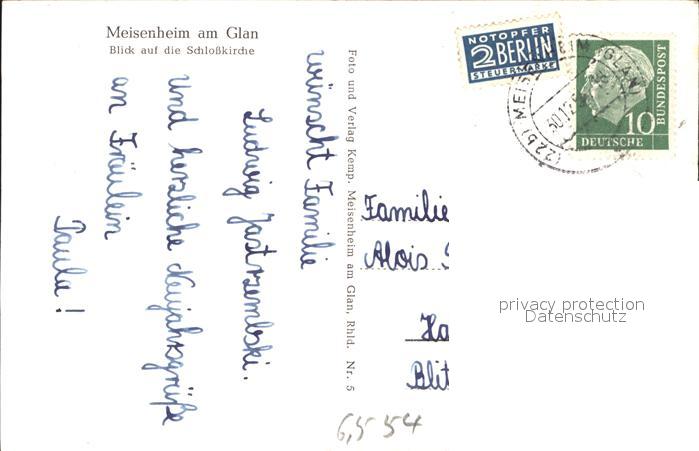 Meisenheim am Glan
Blick auf die Schloßkirche
wünscht Familie
Ludwig Jastrzembski.
und herzliche Neujahrsgrüße
an Fräulein
Paula!
Foto und Verlag Kemp. Meisenheim am Glan, Rhld. Nr. 5
NOTOPFER
2 BERLIN
STEUERMARKE
(22b) MEISENHEIM (GLAN)
10
DEUTSCHE
BUNDESPOST
Familie
Alois
Ha
Blit
privacy protection
Datenschutz
6,5 54